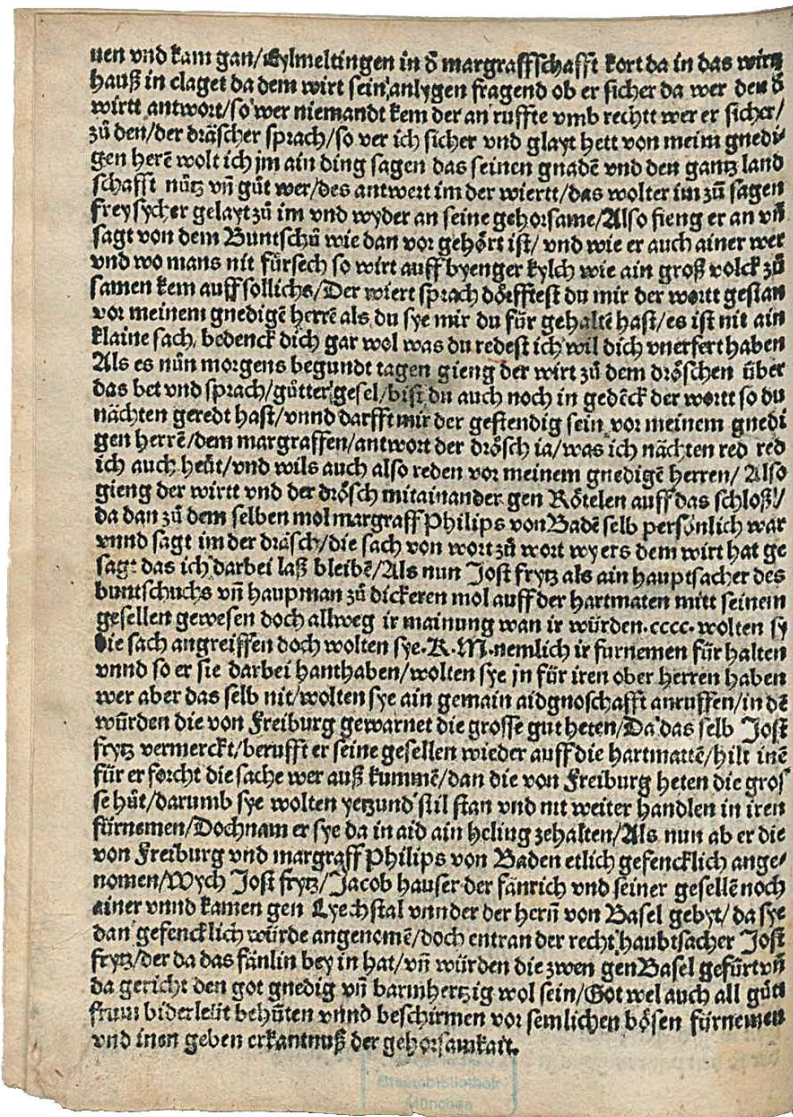 nen vnd kam gan/Eylmeltingen in ð margraffschafft kort da in das wirtz
hauß in claget da dem wirt sein anlygen fragend ob er sicher da wer den ð
wirtt antwort/so wer niemandt kem der an ruffte vmb rechtt wer er sicher/
zů den/der dräscher sprach/so ver ich sicher vnd glayt hett von meim gnedi⸗
gen herẽ wolt ich jm ain ding sagen das seinen gnadẽ vnd den gantz land
schafft nütz vñ gůt wer/des antwert im der wiertt/das wolter im zů sagen
frey sycher gelayt zů im vnd wyder an seine gehorsame/Also fieng er an vñ
sagt von dem Buntschů wie dan vor gehört ist/ vnd wie er auch ainer wer
vnd wo mans nit fürsech so wirt auff byenger kylch wie ain groß volck zů
samen kem auff sollichs/Der wiert sprach dötfftest du mir der wortt gestan
vor meinem gnedigẽ herrẽ als du sye mir du für gehaltẽ hast/es ist nit ain
klaine sach, bedenck dich gar wol was du redest ich wil dich vnerfert haben
Als es nůn morgens begundt tagen gieng der wirt zů dem dröschen über
das bet vnd sprach/gůtter gesel/bist du auch noch in gedẽck der wortt so du
nächten geredt hast/vnnd darfft mir der gestendig sein vor meinem gnedi
gen herrẽ/dem margraffen/antwort der drösch ia/was ich nächten red red
ich auch heüt/vnd wils auch also reden vor meinem gnedigẽ herren/ Also
gieng der wirtt vnd der drösch mitainander gen Rötelen auff das schloß/
da dan zů dem selben mol margraff Philips von Badẽ selb persönlich war
vnnd sagt im der dräsch/die sach von wort zů wort wy ers dem wirt hat ge
sagt das ich darbei laß bleibẽ/Als nun Jost frytz als ain hauptsacher des
buntschuchs vñ haupman zů dickeren mol auff der hartmaten mitt seinem
gesellen gewesen doch allweg ir mainung wan ir würden.cccc.wolten sy
die sach angreiffen doch wolten sye.K.M.nemlich ir furnemen für halten
vnnd so er sie darbei hanthaben/wolten sye jn für iren ober herren haben
wer aber das selb nit/wolten sye ain gemain aidgnoschafft anruffen/in dẽ
würden die von Freiburg gewarnet die grosse gut heten/Da das selb Jost
frytz vermerckt/berufft er seine gesellen wieder auff die hartmattẽ/hilt inẽ
für er forcht die sache wer auß kummẽ/dan die von Freiburg heten die gros
se hůt/darumb sye wolten yetzund stil stan vnd nit weiter handlen in iren
fürnemen/Doch nam er sye da in aid ain heling zehalten/Als nun ab er die
von Freiburg vnd margraff Philips von Baden etlich gefencklich ange⸗
nomen/Wych Jost frytz/Jacob hauser der fänrich vnd seiner gesellẽ noch
ainer vnnd kamen gen Lyechstal vnnder der herñ von Basel gebyt/da sye
dan gefencklich würde angenomẽ/doch entran der recht haubtsacher Jost
frytz/der da das fänlin bey in hat/vñ würden die zwen gen Basel gefürt vñ
da gericht den got gnedig vñ barmhertzig wol sein/Got wel auch all gůti
frum biderleüt behůten vnnd beschirmen vor semlichen bösen fürnemen
vnd inen geben erkantnuß der gehorsamkait.
Staatsbibliothek
München